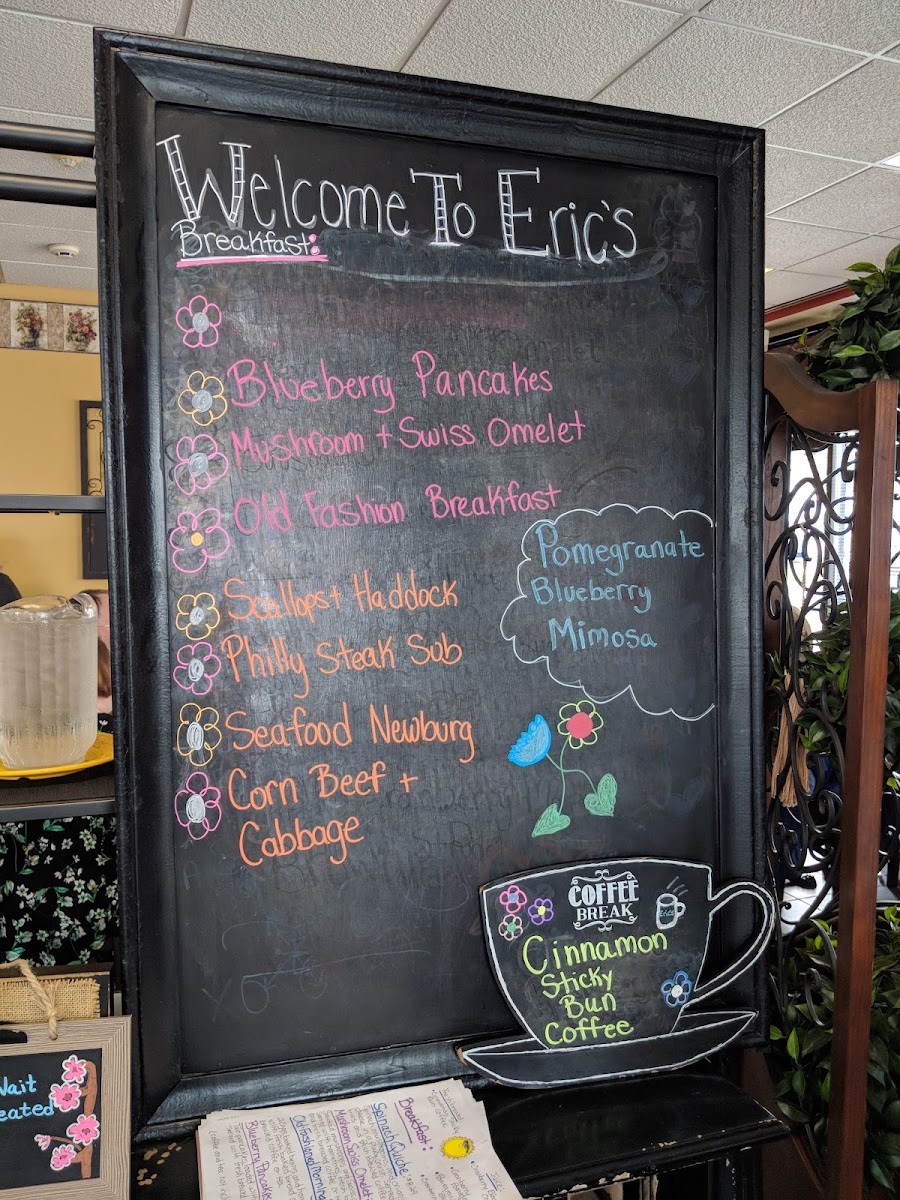 Welcome To Eric's
Breakfast:
Blueberry Pancakes
Mushroom + Swiss Omelet
Old Fashion Breakfast
Scallops + Haddock
Philly Steak Sub
Seafood Newburg
Corn Beef +
Cabbage
Pomegranate
Blueberry
Mimosa
COFFEE
BREAK
Cinnamon
Sticky
Bun
Coffee
Wait
eated
Breakfast:
Spinach Quiche
Mushroom Swiss Omelet
Old Fashioned Morning
Blueberry Pancakes